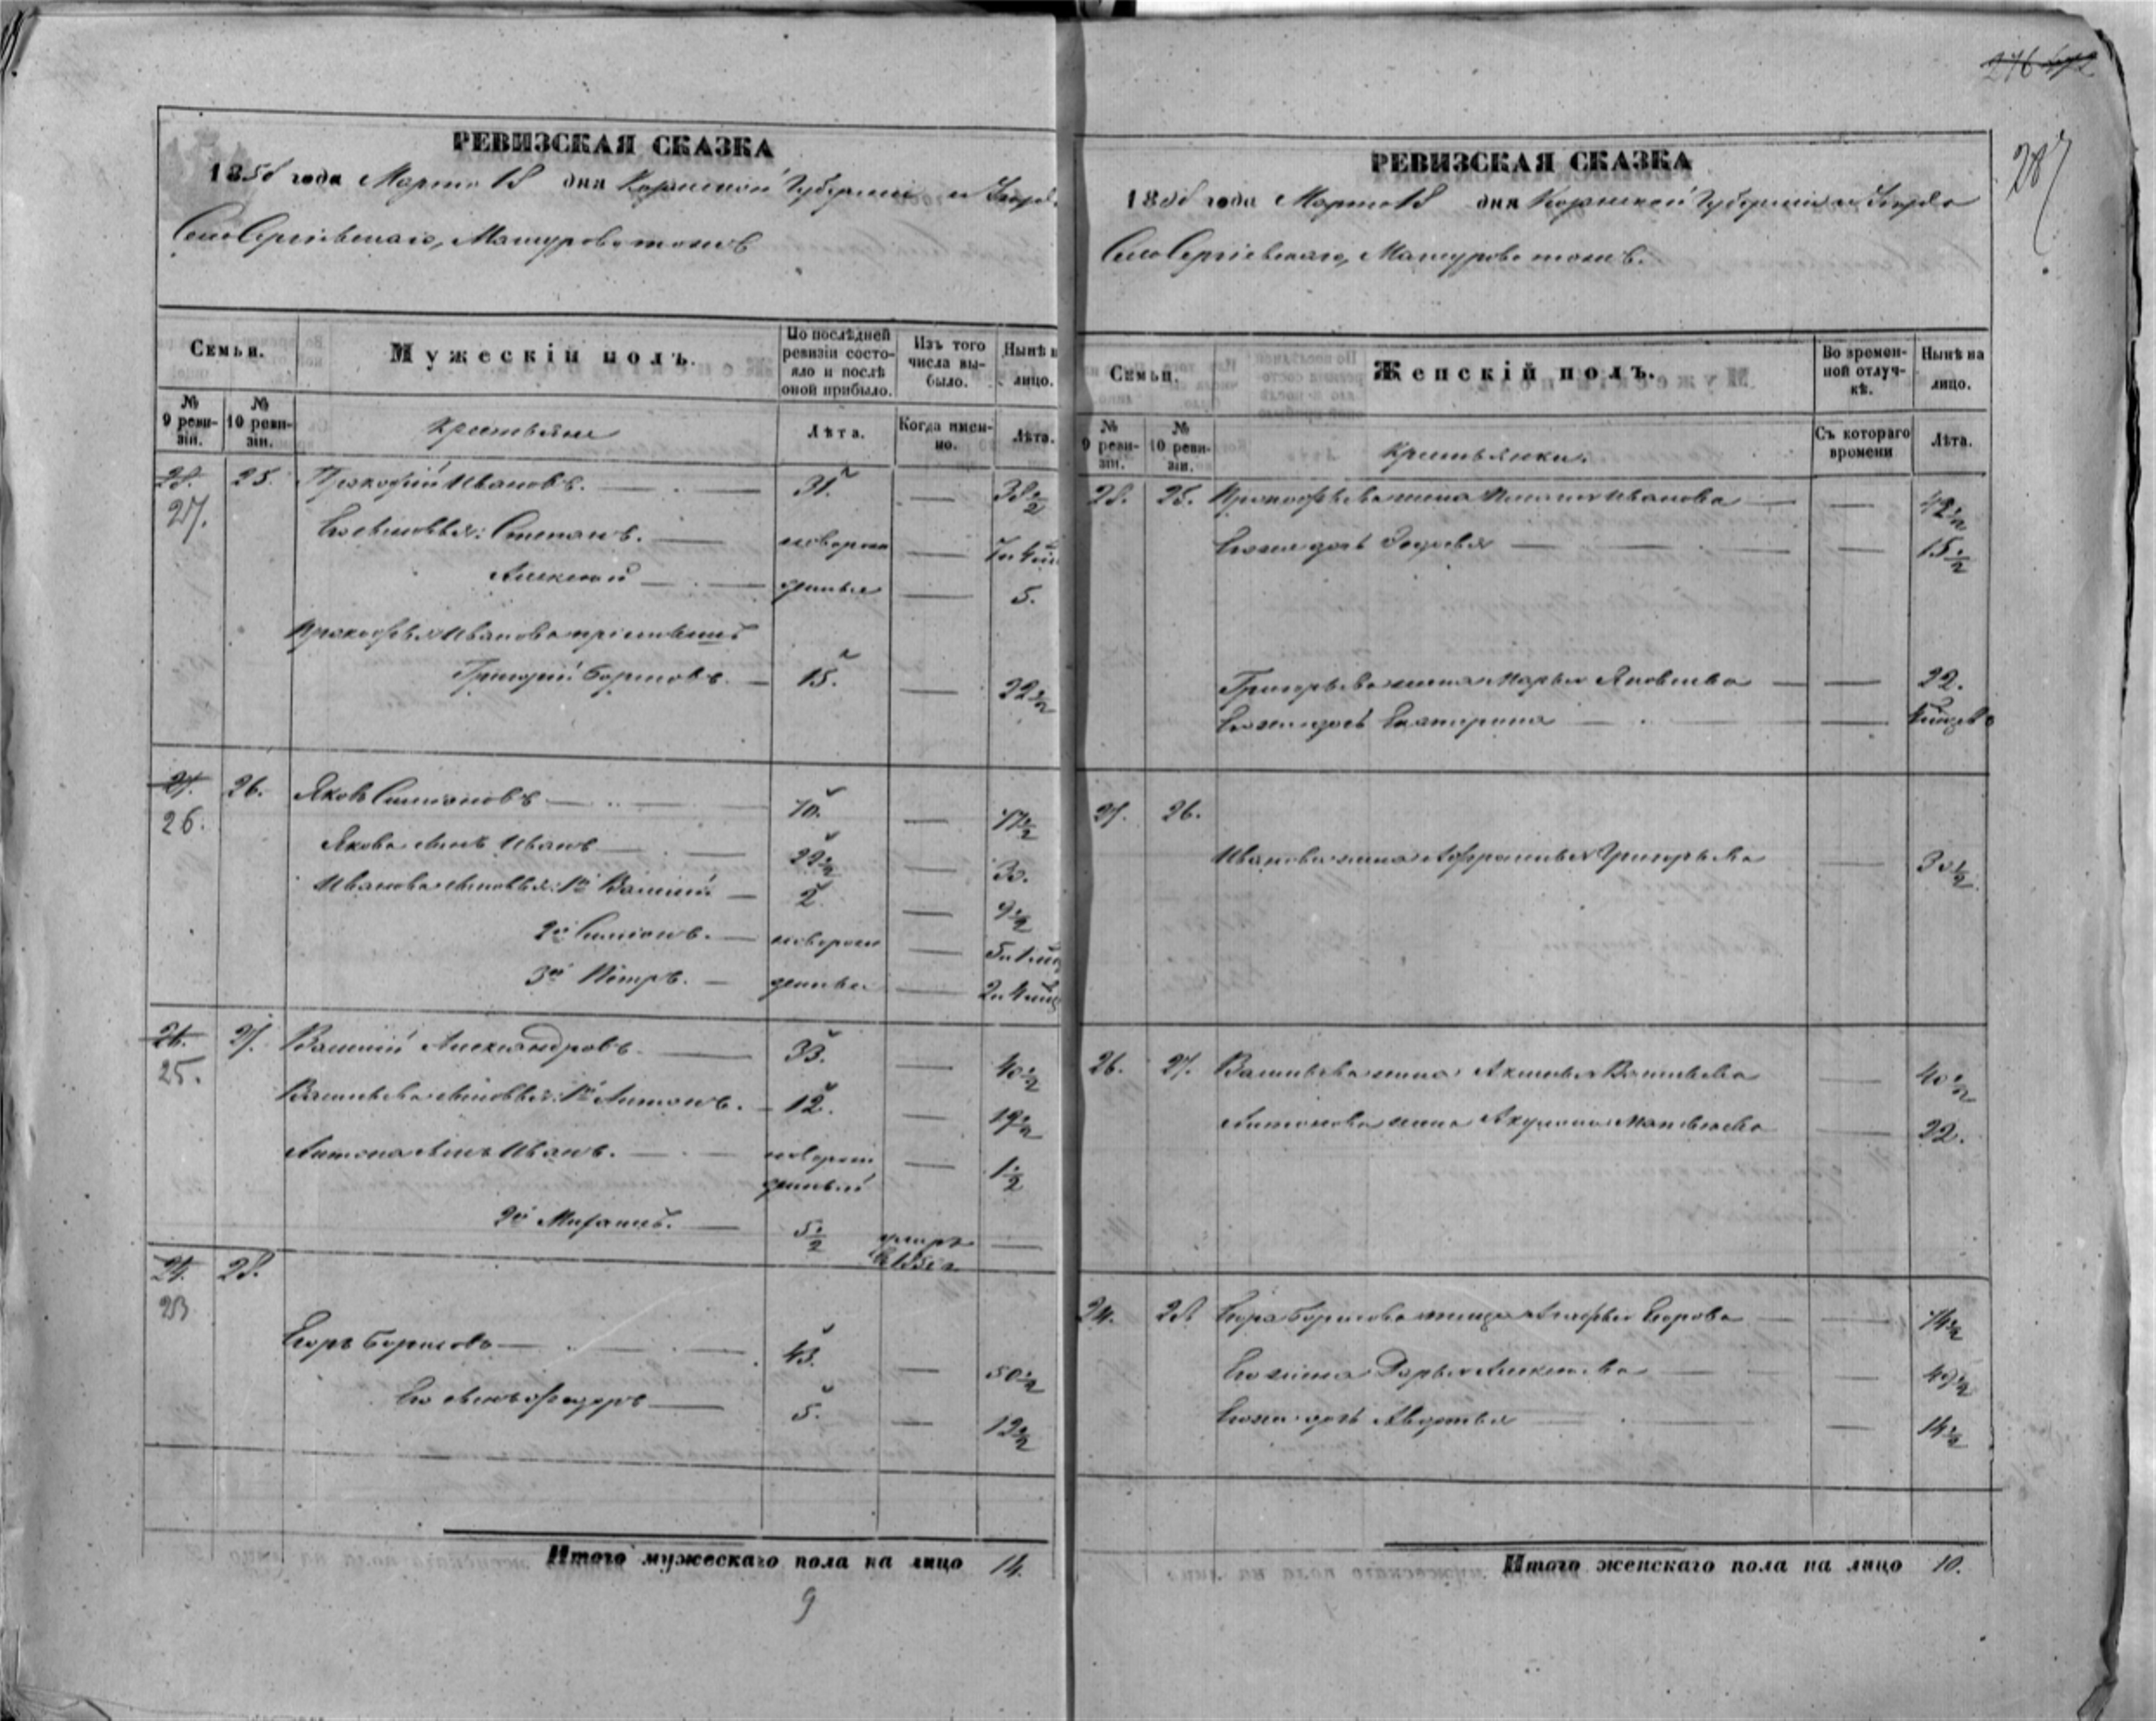 276 472
287
РЕВИЗСКАЯ СКАЗКА
1858 года Марта 18 дня Казанской Губерніи и Уѣзда
Села Сергіевскаго, Машурово тожъ
Семьи.
Мужескій полъ.
По послѣдней ревизіи состояло и послѣ оной прибыло.
Изъ того числа выбыло.
Нынѣ на лицо.
№ 9 ревизіи.
№ 10 ревизіи.
Крестьяне
Лѣта.
Когда именно.
Лѣта.
28. 25. Прокофій Ивановъ. 31. — 38½
27.
Его сыновья: Степанъ. новорож — 7 и 4
Алексей денные — 5.
Прокофья Иванова
Григорій Борисовъ. 15. — 22½
27. 26. Яковъ Симіоновъ 70. — 77½
26.
Якова сынъ Иванъ 22½ — 30.
Ивановы сыновья: 1й Василій 2. — 9½
2й Симіонъ. новорож — 5 и 1
3й Петръ. денные — 2 и 4
26. 27. Василий Александровъ 33. — 40½
25.
Васильевы сыновья: 1й Антонъ. 12. — 19½
Антона сынъ Иванъ. новорож — 1½
денный
2й 5½ умеръ —
24. 28.
23
Егоръ Борисовъ 43. — 50½
Его сынъ Федоръ 5. — 12½
Итого мужескаго пола на лицо 14.
9
РЕВИЗСКАЯ СКАЗКА
1858 года Марта 18 дня Казанской Губерніи и Уѣзда
Села Сергіевскаго, Машурово тожъ.
Семьи.
Женскій полъ.
Во временной отлучкѣ.
Нынѣ на лицо.
№ 9 ревизіи.
№ 10 ревизіи.
Крестьянки.
Съ котораго времени
Лѣта.
28. 25. Прокофьева жена Иванова — 42½
Его же дочь — 15½
Григорьева жена Марья Яковлева — 22.
Его же дочь Екатерина —
27. 26.
Иванова жена Афросинья Григорьева — 30½
26. 27. Васильева жена Аксинья Васильева — 40½
Антонова жена Акулина Матвеева — 22.
24. 28. Егора Борисова мачиха Агафья Егорова — 74½
Его жена Дарья Алексеева — 49½
Его же дочь Авдотья — 14½
Итого женскаго пола на лицо 10.